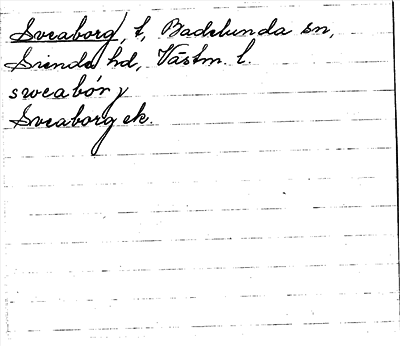 Sveaborg, t, Badelunda sn,
Siende hd, Västm. l.
sweabórj
Sveaborg ek.